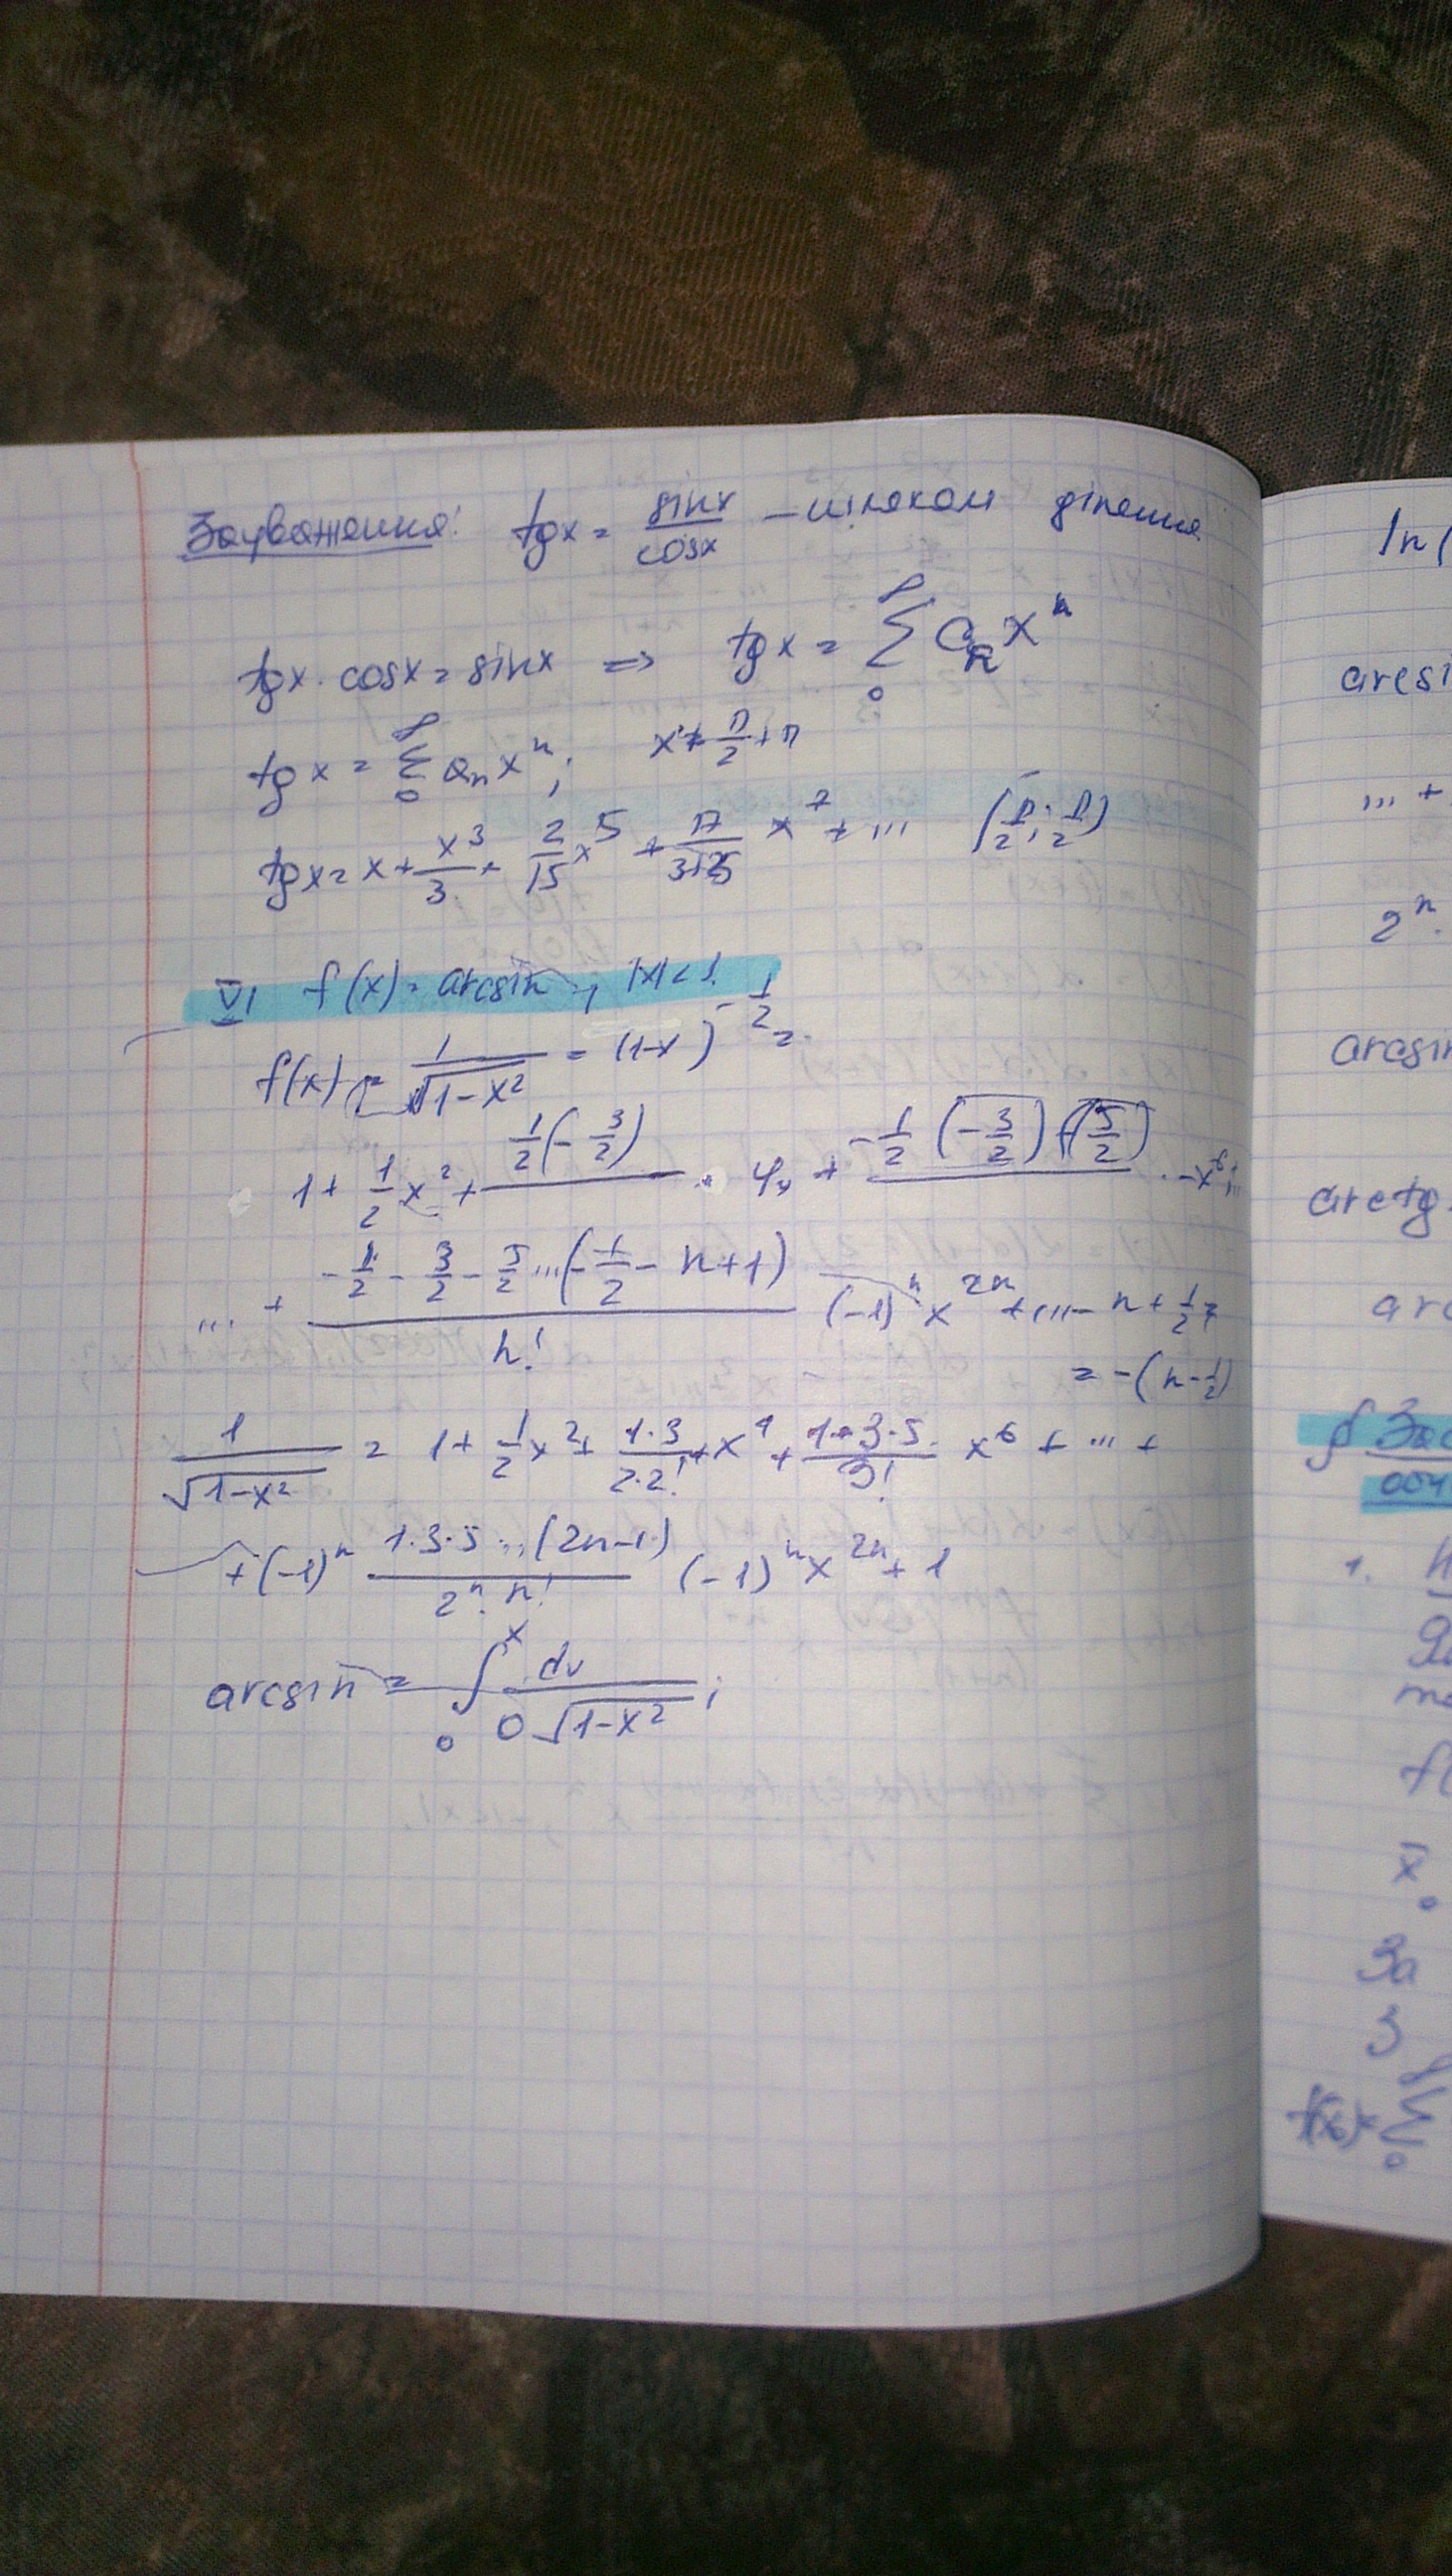 Зауваження: tgx = sinx/cosx – шляхом ділення
tgx · cosx = sinx ⇒ tgx = ∑₀^∞ Cₙxⁿ
tgx = ∑₀^∞ aₙxⁿ; x ≠ π/2 + π
tgx = x + x³/3 + 2/15 x⁵ + 17/315 x⁷ + ... (-π/2; π/2)
VI f(x) = arcsin, |x| < 1.
f(x) = 1/√(1-x²) = (1-x)^(-1/2) =
1 + 1/2 x² + 1/2(-3/2) · 4, + -1/2 (-3/2)(-5/2) · -x⁶ + ...
... + (-1/2 - 3/2 - 5/2 ... (-1/2 - n + 1))/n! (-1)ⁿx²ⁿ + ... - n + 1/2 =
= -(n - 1/2)
1/√(1-x²) = 1 + 1/2 x² + 1·3/2·2! + x⁴ + 1·3·5/3! x⁶ + ... +
+ (-1)ⁿ 1·3·5...(2n-1)/2ⁿ·n! (-1)ⁿx²ⁿ + 1
arcsin = ∫₀ˣ dv/0√(1-x²);
ln(
arcsi
... +
2ⁿ·
arcsin
arctg
arc
§ Зас
1. Н
f(
x̄
За
3
f(x) = ∑₀^∞